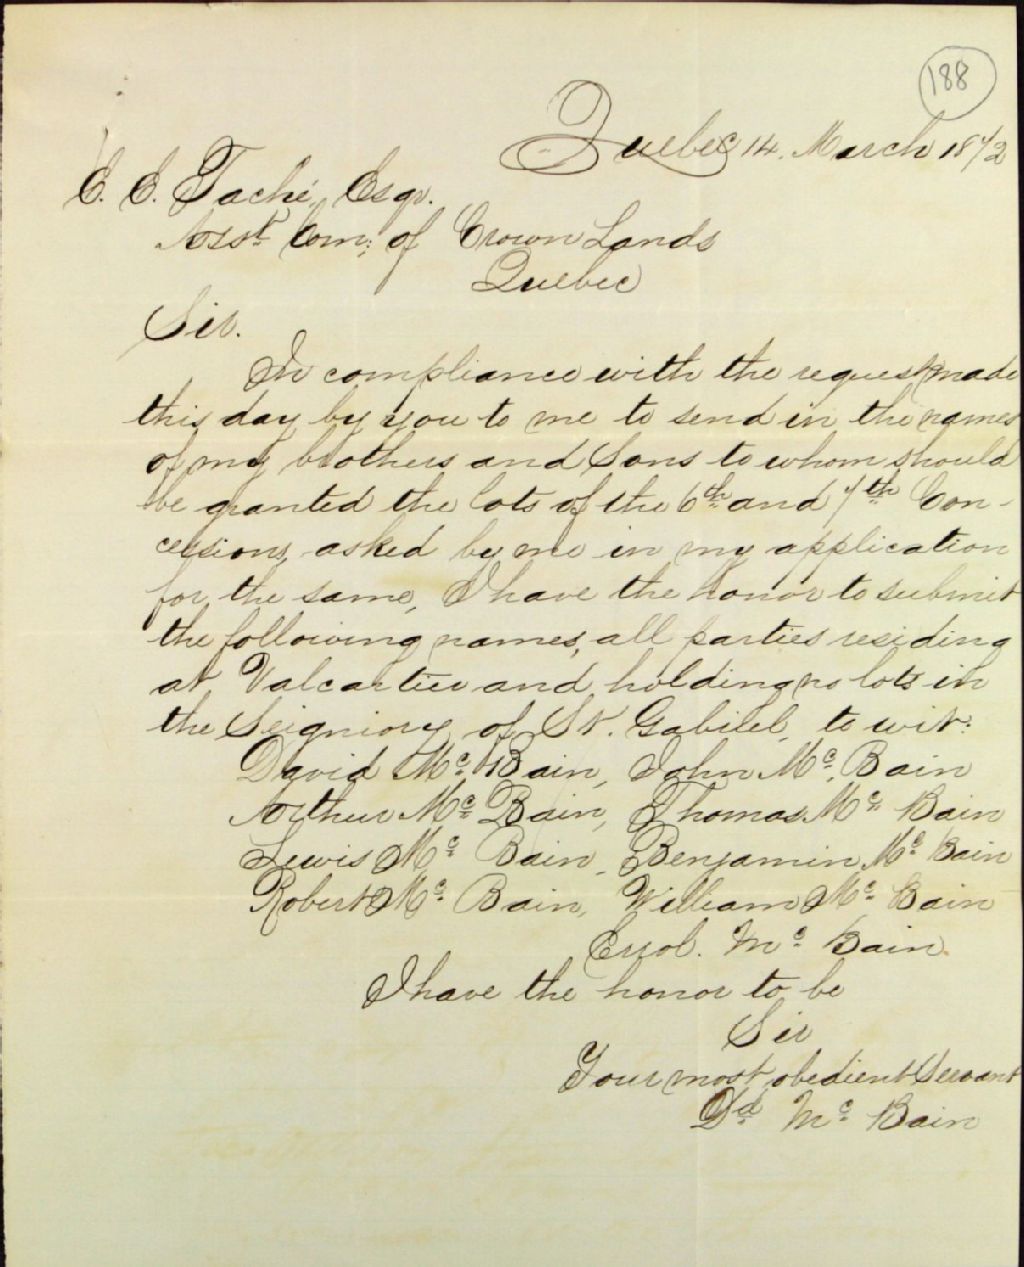 188
Quebec 14. March 1872
E. E. Taché, Esqr.
Asst. Com: of Crown Lands
Quebec
Sir.
In compliance with the request made
this day by you to me to send in the names
of my brothers and Sons to whom should
be granted the lots of the 6th and 7th Con-
cessions, asked by me in my application
for the same, I have the honor to submit
the following names, all parties residing
at Valcartier and holding no lots in
the Seigniory of St. Gabriel, to wit:
David Mc Bain, John Mc Bain
Arthur Mc Bain, Thomas Mc Bain
Lewis Mc Bain, Benjamin Mc Bain
Robert Mc Bain, William Mc Bain
Errol. Mc Bain.
I have the honor to be
Sir
Your most obedient Servant
Dd Mc Bain